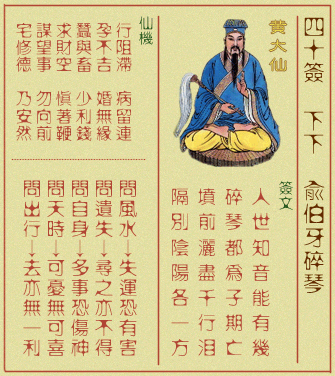 四十簽 下下 俞伯牙碎琴
黃大仙
簽文
人世知音能有幾
碎琴都為子期亡
墳前灑盡千行泪
隔別陰陽各一方
仙機
行阻滯 病留連
孕不吉 婚無緣
蠶與畜 少利錢
求財空 慎著鞭
謀望事 勿向前
宅修德 乃安然
問風水→失運恐有害
問遺失→尋之亦不得
問自身→多事恐傷神
問天時→可憂無可喜
問出行→去亦無一利